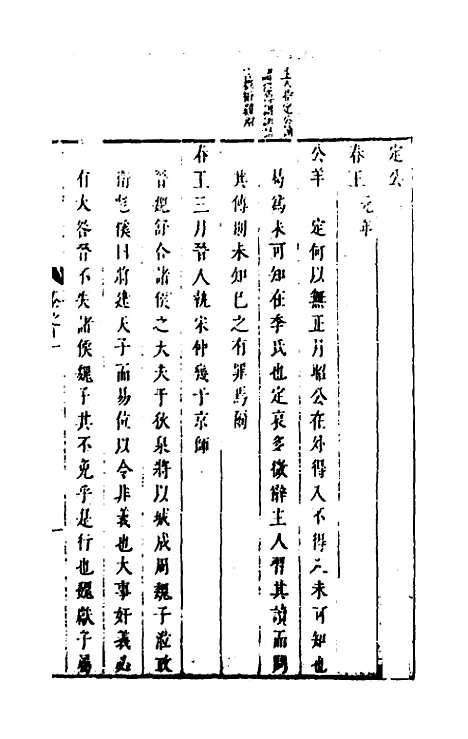 定公
春王元年
公羊 定何以無正月昭公在外得入不得入未可知也
曷為未可知在季氏也定哀多微辭主人習其讀而問
其傳則未知己之有罪焉爾
春王三月晉人執宋仲幾于京師
晉魏舒合諸侯之大夫于狄泉將以城成周魏子涖政
衛彪傒曰將建天子而易位以令非義也大事奸義必
有大咎晉不失諸侯魏子其不免乎是行也魏獻子屬
卷之十一
主人指定公